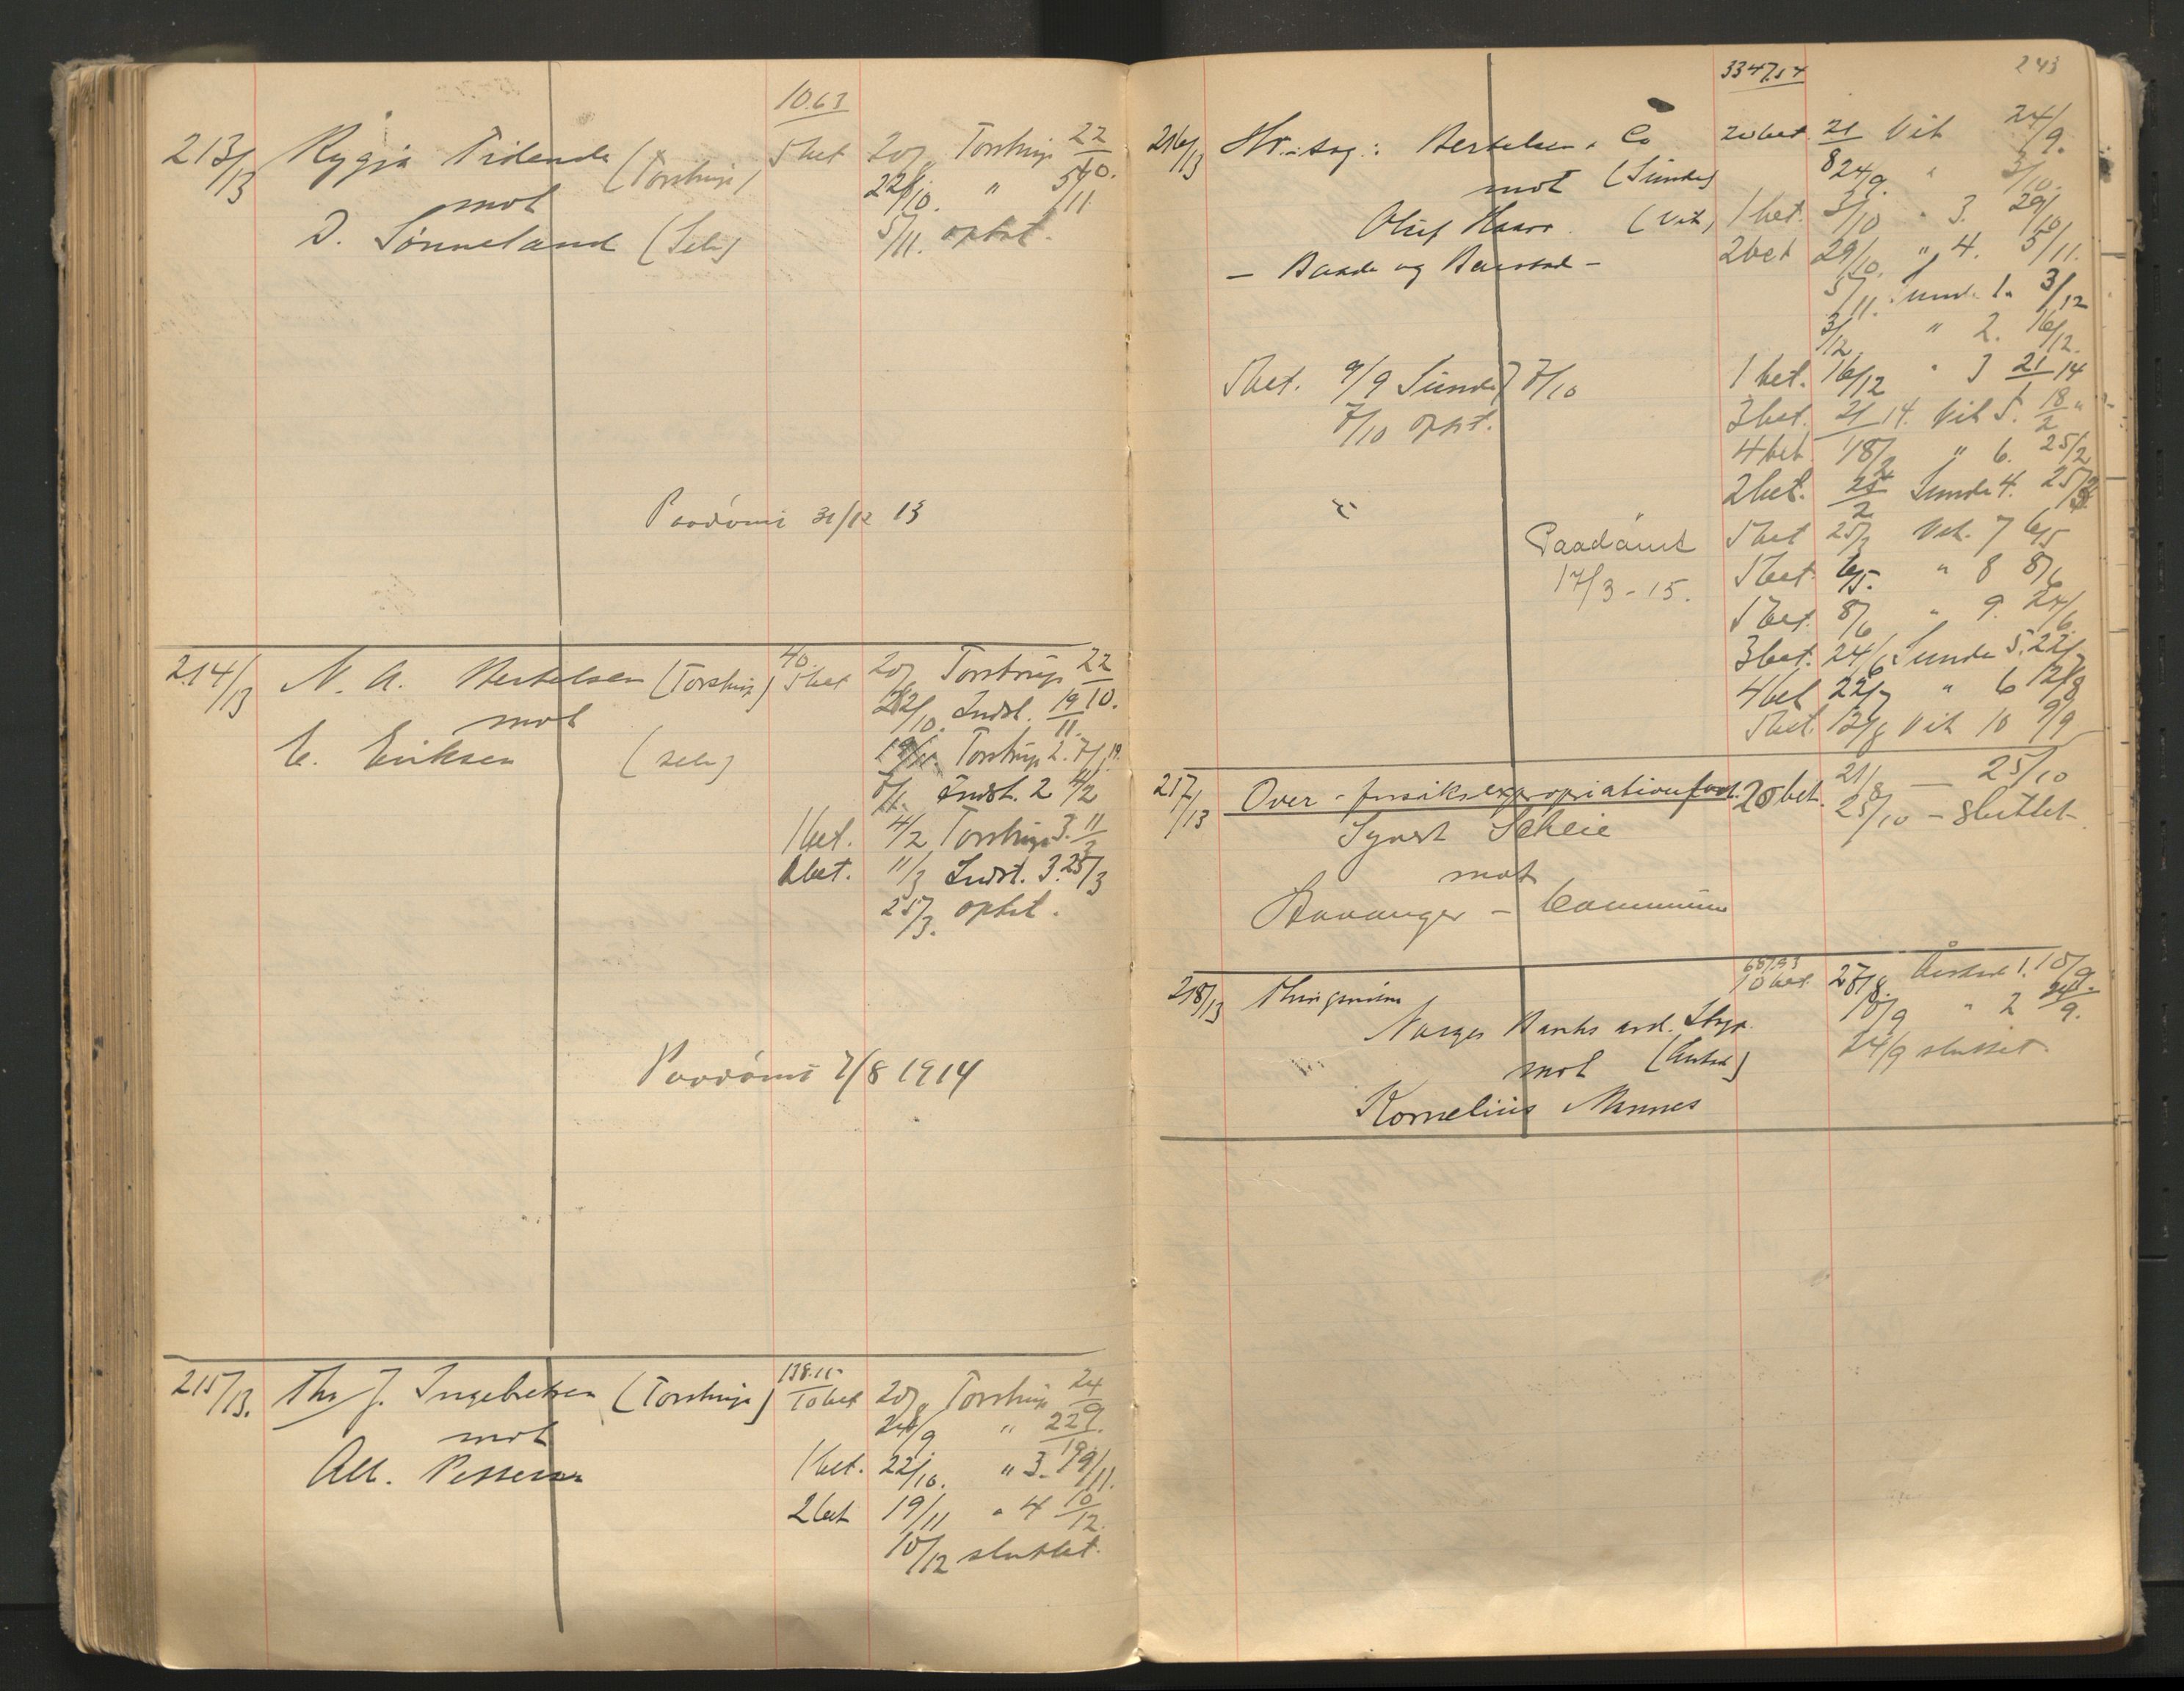 10.63
213/13 Rygja Tidende (Torstrup) 5 bet 20/8 Torstrup 22/10.
mot 22/10. " 5/11.
D. Sønneland (Selv) 5/11. optat.
Paadømt 31/12 13
40.
214/13 N. A. Bertelsen (Torstrup) 5 bet 20/8 Torstrup 22/10.
mot 22/10. Indst. 19/11.
E. Eriksen (selv) 19/11. Torstrup 2. 7/1
7/1. Indst. 2 4/2
1 bet. 4/2 Torstrup 3. 11/3
bet. 11/3 Indst. 3. 25/3
25/3. optat.
Paadømt 7/8 1914
138.15
215/13. Ths J. Ingebretsen (Torstrup) 10 bet 20/8 Torstrup 24/9
mot 24/9. " 22/10.
Alb. Pettersen 1 bet. 22/10. " 3. 19/11.
2 bet 19/11 " 4 10/12.
10/12 sluttet.
243
3347.54
216/13 Bertelsen & Co 20 bet 21/8 Vik 24/9.
mot (Sunde) 24/9. " 3/10.
Oluf Haaver (Vik) 1 bet. 3/10 " 3. 29/10
2 bet 29/10. " 4. 5/11.
5/11. Sunde 1. 3/12
3/12 " 2. 16/12.
5 bet. 9/9 Sunde 7 7/10 1 bet. 16/12 " 3 21/1 14
7/10 opst. 3 bet. 21/1 14. Vik 5. 18/2 "
4 bet 18/2 " 6. 25/2
2 bet. 25/2 Sunde 4. 25/3
Paadømt 5 bet 25/3 Vik. 7 6/5
17/3 - 15. 5 bet. 6/5. " 8 8/6
1 bet. 8/6 " 9. 24/6.
3 bet. 24/6 Sunde 5. 22/7
4 bet 22/7 " 6 12/8
5 bet 12/8 Vik 10 9/9
217/13 Over-expropriation 20 bet. 21/8 — 25/10
Synest Scheie 25/10 - sluttet
mot
Stavanger - Commune
218/13 10 bet 27/8. 1. 10/9.
Norges Banks avd. Stvgr. 10/9 " 2 24/9.
mot 24/9 sluttet
Kornelius Munnes